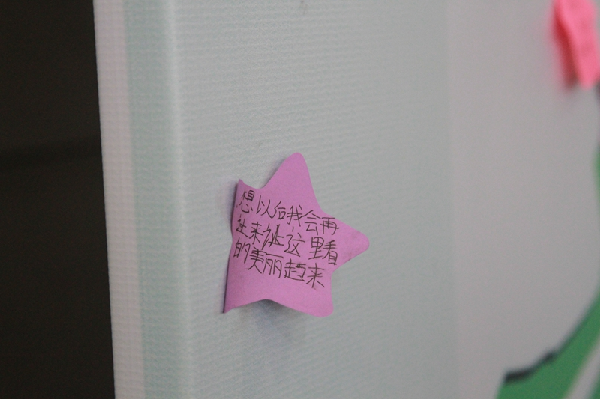 想以后我会再
来 这里看
的美丽起来